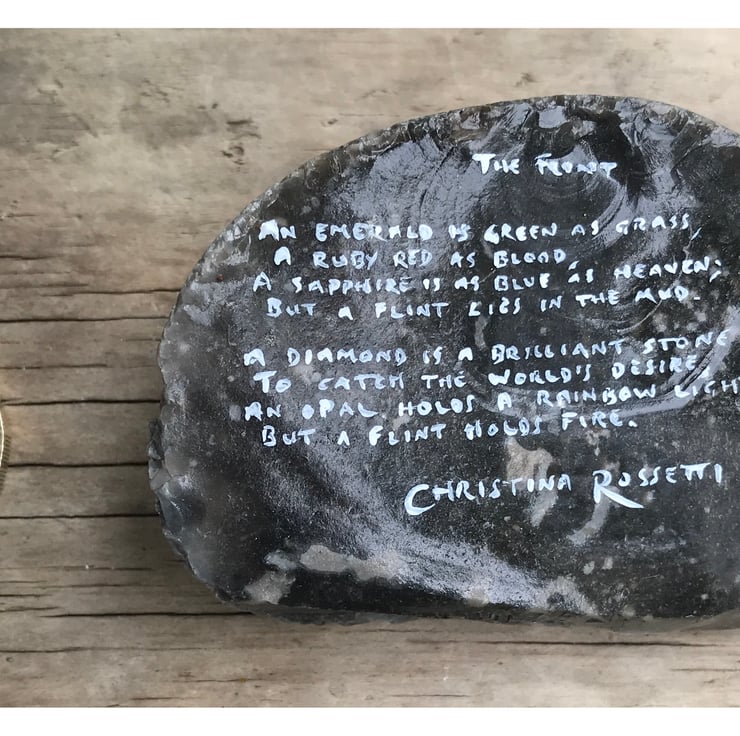 THE
AN EMERALD IS GREEN AS GRASS,
A RUBY RED AS BLOOD,
A SAPPHIRE IS AS BLUE AS HEAVEN;
BUT A FLINT LIES IN THE MUD.
A DIAMOND IS A BRILLIANT STONE
TO CATCH THE WORLD'S DESIRE,
AN OPAL HOLDS A RAINBOW LIGH
BUT A FLINT HOLDS FIRE.
CHRISTINA ROSSETTI